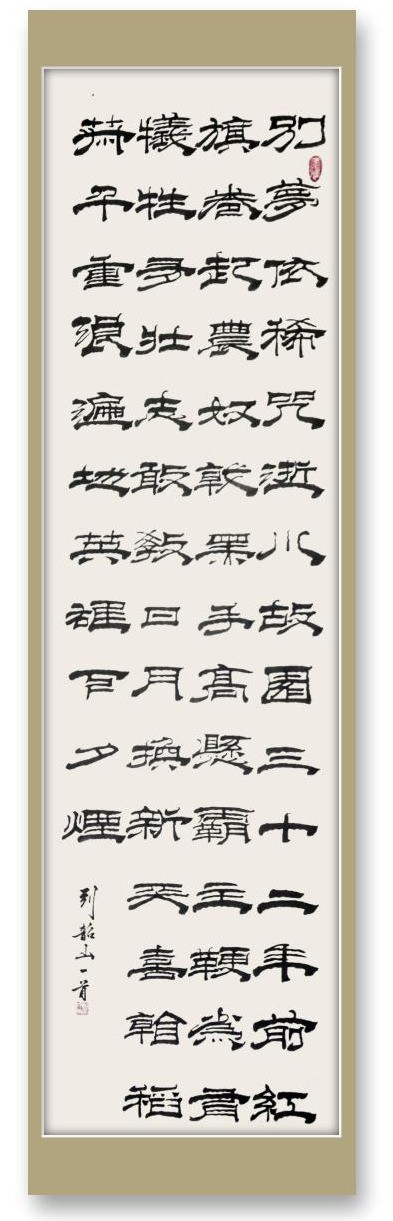 別夢依稀咒逝川故園三十二年前紅
旗卷起農奴戟黑手高懸霸主鞭為有
犧牲多壯志敢教日月換新天喜看稻
菽千重浪遍地英雄下夕煙
到韶山一首